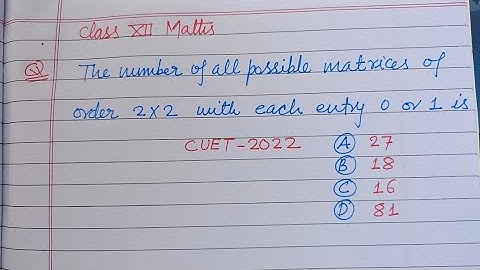 Class XII Maths
Q The number of all possible matrices of
order 2x2 with each entry 0 or 1 is
CUET-2022 A 27
B 18
C 16
D 81